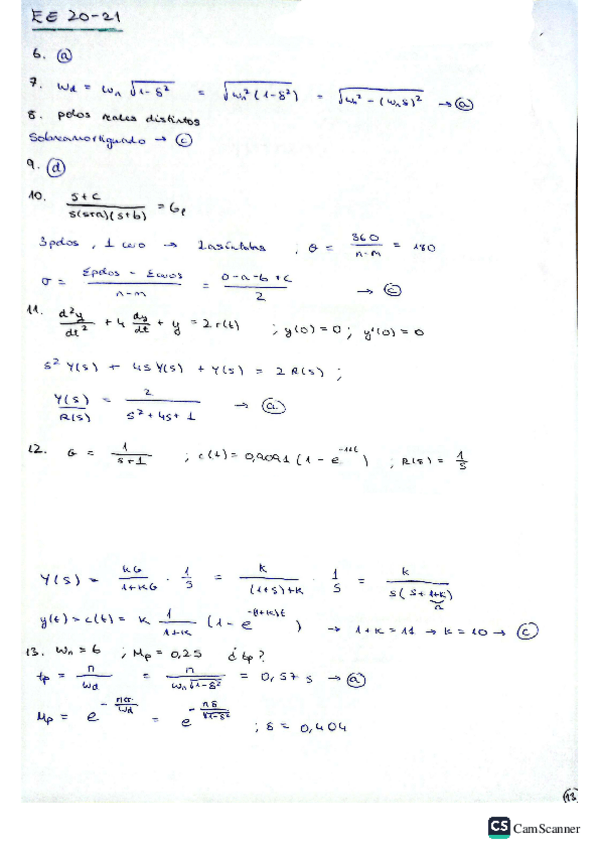 EE 20-21
6. (a)
7. Wd = Wn √(1-δ²) = √(Wn²(1-δ²)) = √(Wn² - (Wnδ)²) → (a)
8. polos reales distintos
Sobreamortiguado → (c)
9. (d)
10. (s+c)/(s(s+a)(s+b)) = Gp
3 polos, 1 cero → 2 asíntotas ; θ = 360/(n-m) = 180
σ = (Σpolos - Σceros)/(n-m) = (0-a-b+c)/2 → (c)
11. d²y/dt² + 4 dy/dt + y = 2r(t) ; y(0)=0 ; y'(0)=0
s² Y(s) + 4s Y(s) + Y(s) = 2 R(s) ;
Y(s)/R(s) = 2/(s²+4s+1) → (a)
12. G = 1/(s+1) ; c(t) = 0,9091 (1 - e^(-11t)) ; R(s) = 1/s
Y(s) = KG/(1+KG) · 1/s = K/((1+s)+K) · 1/s = K/(s(s+1+K))
y(t) = c(t) = K 1/(1+K) (1 - e^(-(1+K)t)) → 1+K = 11 → K = 10 → (c)
13. Wn = 6 ; Mp = 0,25 ¿tp?
tp = π/Wd = π/(Wn√(1-δ²)) = 0,57 s → (a)
Mp = e^(-πσ/Wd) = e^(-πδ/√(1-δ²)) ; δ = 0,404
(13)
CS CamScanner